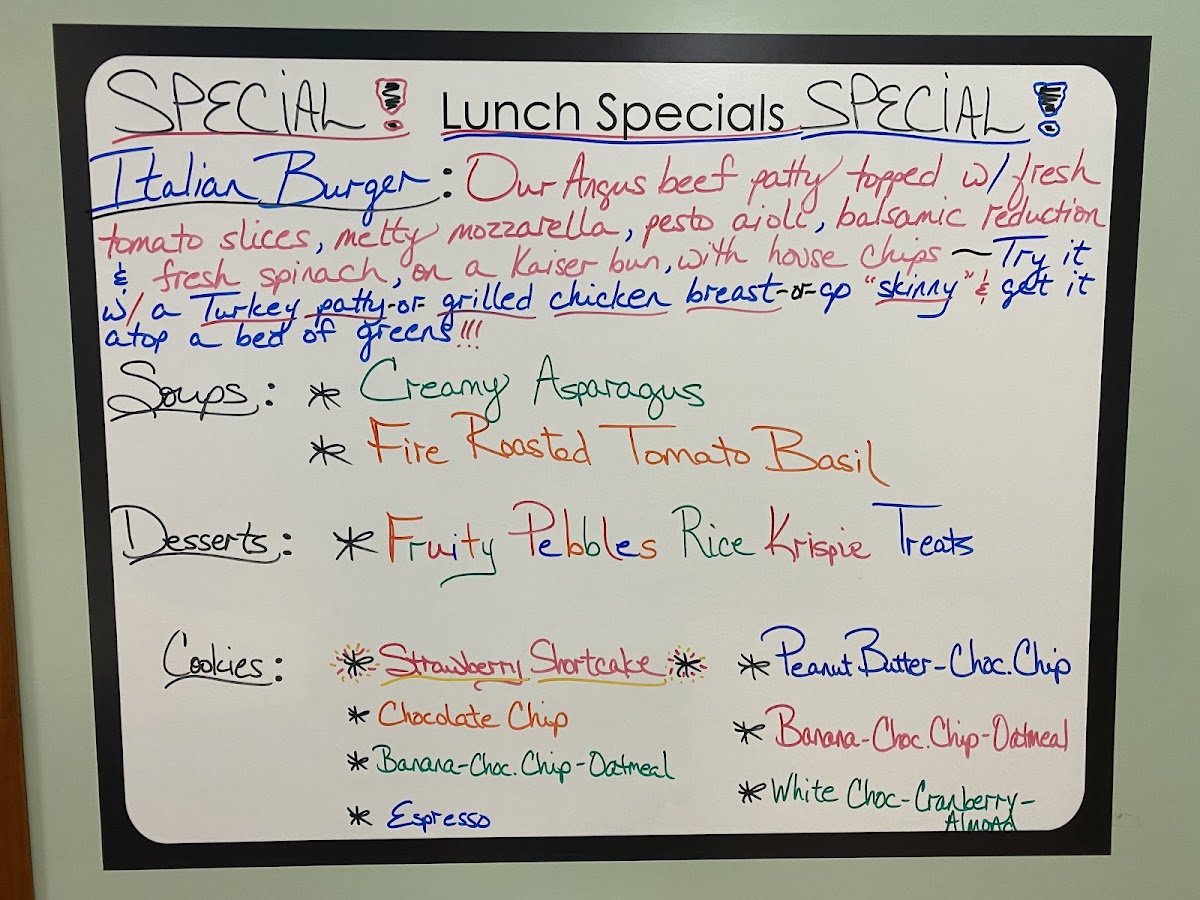 SPECIAL! Lunch Specials SPECIAL!
Italian Burger: Our Angus beef patty topped w/ fresh
tomato slices, melty mozzarella, pesto aioli, balsamic reduction
& fresh spinach, on a Kaiser bun, with house chips ~ Try it
w/ a Turkey patty-or grilled chicken breast-or-go "skinny" & get it
atop a bed of greens!!!
Soups: * Creamy Asparagus
* Fire Roasted Tomato Basil
Desserts: * Fruity Pebbles Rice Krispie Treats
Cookies: * Strawberry Shortcake * * Peanut Butter-Choc.Chip
* Chocolate Chip
* Banana-Choc.Chip-Oatmeal
* Banana-Choc.Chip-Oatmeal
* White Choc-Cranberry-
Almond
* Espresso